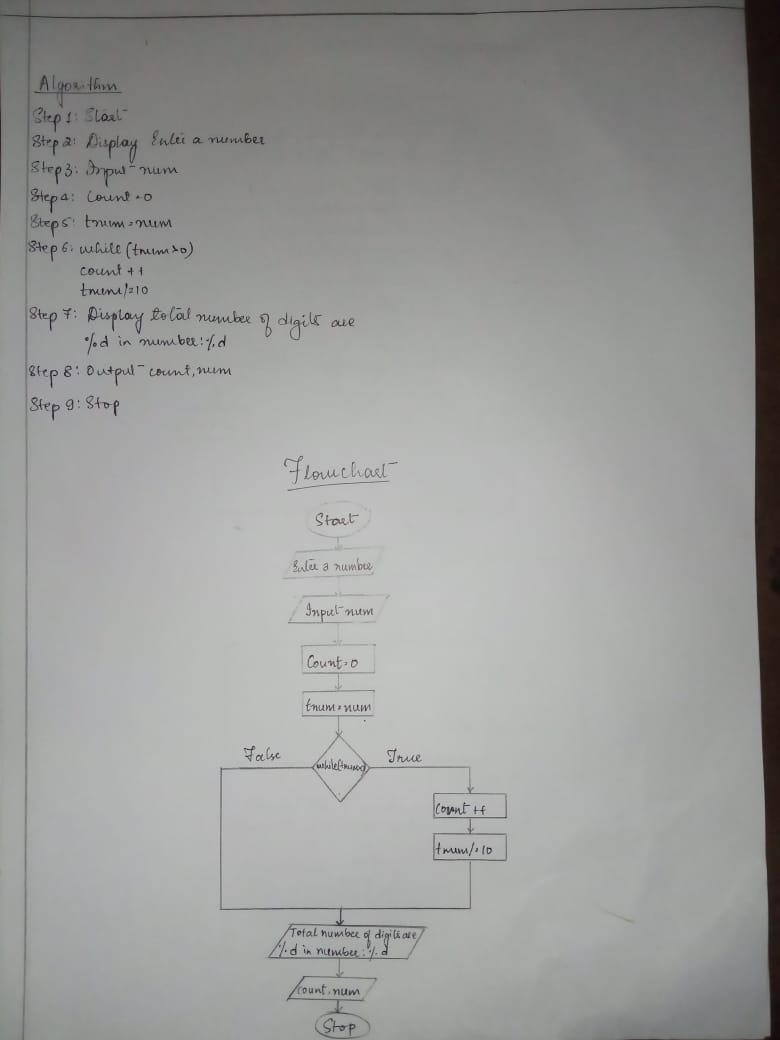 Algorithm
Step 1: Start
Step 2: Display Enter a number
Step 3: Input num
Step 4: Count=0
Step 5: tnum=num
Step 6: while(tnum>0)
count++
tnum/=10
Step 7: Display total number of digits are
%d in number:%d
Step 8: Output count,num
Step 9: Stop
Flowchart
Start
Enter a number
Input num
Count=0
tnum=num
False
True
while(tnum>0)
Count++
tnum/=10
Total number of digits are
%d in number:%d
count,num
Stop